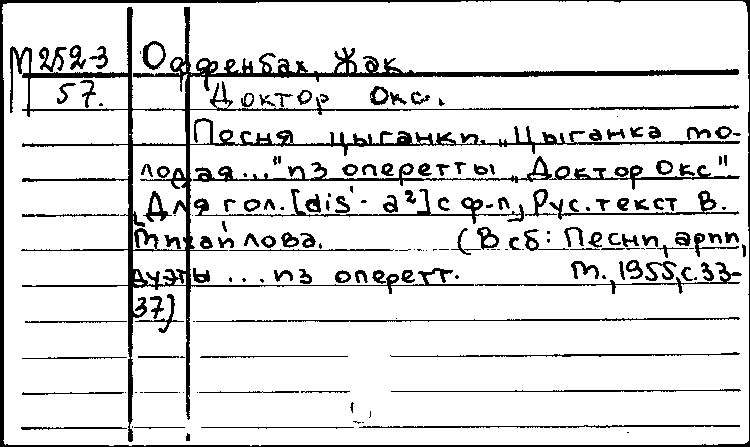 М 252-3 Оффенбах, Жак.
57. Доктор Окс.
Песня цыганки. „Цыганка мо-
лодая..." из оперетты „Доктор Окс"
Для гол. [dis' - a²] с ф-п., Рус. текст В.
Михайлова. (В сб: Песни, арии,
дуэты ... из оперетт. М., 1955, с. 33-
37)